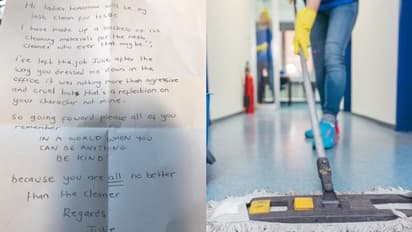 Hi ladies tomorrow will be my
last clean for TSBS
I have made up a
cleaning materials for the next
cleaner who ever that maybe!!
I've left the job Julie after the
way you dressed me down in the
office it was nothing more than agressive
and cruel but that's a reflection on
your character not mine.
So going foward please all of you
remember
IN A WORLD WHEN YOU
CAN BE ANYTHING
BE KIND
because you are all no better
than the cleaner
Regards